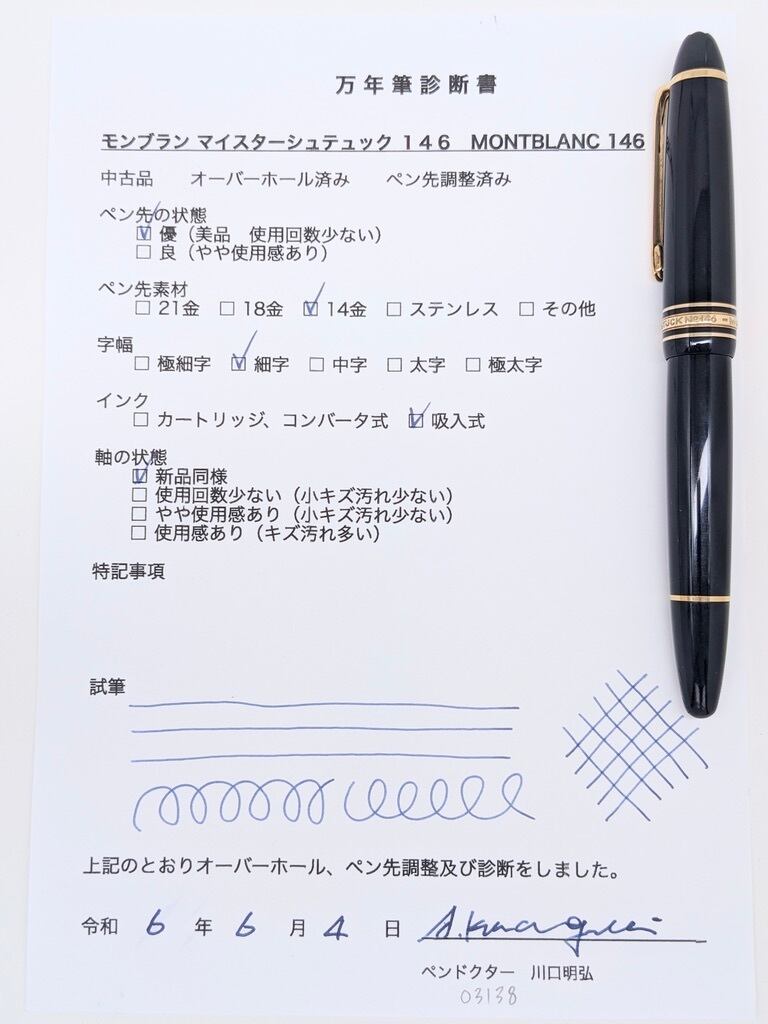 万年筆診断書
モンブラン マイスターシュテュック 146 MONTBLANC 146
中古品 オーバーホール済み ペン先調整済み
ペン先の状態
☑ 優（美品 使用回数少ない）
☐ 良（やや使用感あり）
ペン先素材
☐ 21金 ☐ 18金 ☑ 14金 ☐ ステンレス ☐ その他
字幅
☐ 極細字 ☑ 細字 ☐ 中字 ☐ 太字 ☐ 極太字
インク
☐ カートリッジ、コンバータ式 ☑ 吸入式
軸の状態
☑ 新品同様
☐ 使用回数少ない（小キズ汚れ少ない）
☐ やや使用感あり（小キズ汚れ少ない）
☐ 使用感あり（キズ汚れ多い）
特記事項
試筆
上記のとおりオーバーホール、ペン先調整及び診断をしました。
令和 6 年 6 月 4 日
ペンドクター 川口明弘
03138
TÜCK No146